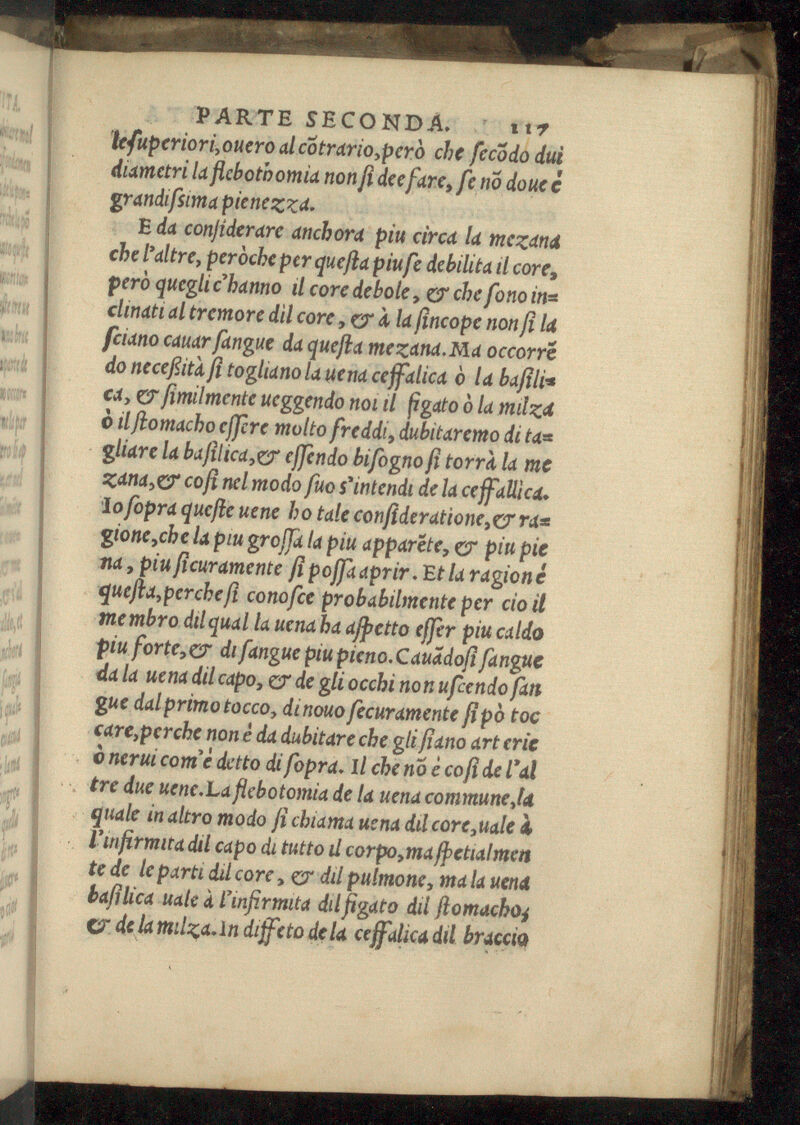 PARTE SECONDA. 117
leſuperiori,ouero al cõtrario,però che ſecõdo dui
diametri la flebothomia non ſi dee fare, ſe nõ doue é
grandiſsima pienezza.
E da conſiderare anchora piu circa la mezana
che l'altre, peròche per queſta piu ſe debilita il core,
però quegli c'hanno il core debole, & che ſono in=
clinati al tremore dil core, & à la ſincope non ſi la
ſciano cauar ſangue da queſta mezana. Ma occorrẽ
do neceßità ſi togliano la uena ceffalica ò la baſili=
ca, & ſimilmente ueggendo noi il figato ò la milza
ò il ſtomacho eſſere molto freddi, dubitaremo di ta=
gliare la baſilica,& eſſendo biſogno ſi torrà la me
zana,& coſi nel modo ſuo s'intendi de la ceffallica.
Io ſopra queſte uene ho tale conſideratione,& ra=
gione,che la piu groſſa la piu apparẽte, & piu pie
na, piu ſicuramente ſi poſſa aprir. Et la ragion é
queſta,perche ſi conoſce probabilmente per cio il
membro dil qual la uena ha aſpetto eſſer piu caldo
piu forte,& di ſangue piu pieno. Cauãdoſi ſangue
da la uena dil capo, & de gli occhi non uſcendo ſan
gue dal primo tocco, di nouo ſecuramente ſi pò toc
care,perche non é da dubitare che gli ſiano arterie
ò nerui com'é detto di ſopra. Il che nõ é coſi de l'al
tre due uene. La flebotomia de la uena commune,la
quale in altro modo ſi chiama uena dil core,uale à
l'infirmita dil capo di tutto il corpo,ma ſpetialmen
te de le parti dil core, & dil pulmone, ma la uena
baſilica uale à l'infirmita dil figato dil ſtomacho,
& de la milza. In diffeto de la ceffalica dil braccio